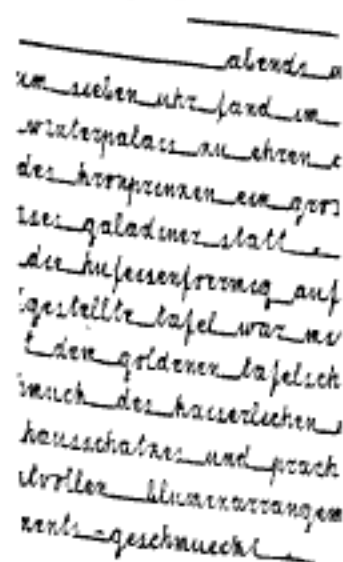 abends
um sieben uhr fand im
winterpalais zu ehren
des kronprinzen ein gros
ses galadiner statt .
die hufeisenfoermig auf
gestellte tafel war mi
t dem goldenen tafelsch
muck des kaiserlichen
hausschatzes und prach
tvollen blumenarrangem
ents geschmueckt .